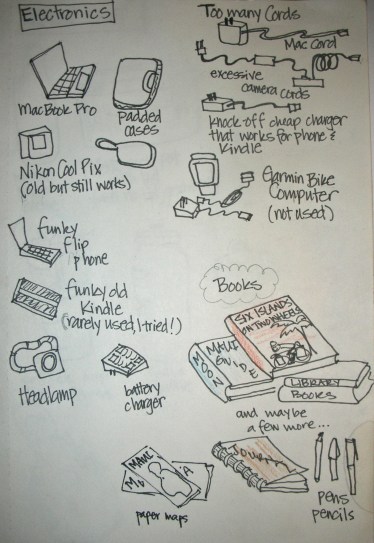 Electronics
MacBook Pro
Padded
cases
Nikon Cool Pix
(old but still works)
funky
flip
phone
funky old
Kindle
(rarely used, I tried!)
Headlamp
battery
charger
Too many Cords
Mac Cord
excessive
camera cords
Knock-off cheap charger
that works for phone &
Kindle
Garmin Bike
Computer
(not used)
Books
SIX ISLANDS
ON TWO WHEELS
MAUI
GUIDE
MOON
LIBRARY
BOOKS
and maybe
a few more...
MAUI
paper maps
JOURNAL
pens
pencils